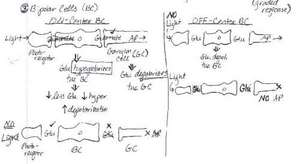 ③ Bipolar Cells (BC)
(graded response)
ON-Center BC
OFF-Center BC
Light →
AP →
Photo-receptor
BC
Ganglion cell (GC)
Glu hyperpolarizes the BC
Glu depolarizes the GC
↓ less Glu ↓ hyper
↑ depolarization
NO Light
Glu
Glu
AP
Glu depol. the BC
Light
Glu
Glu
NO AP
No Light
Glu
Glu
AP
Photo-receptor
BC
GC